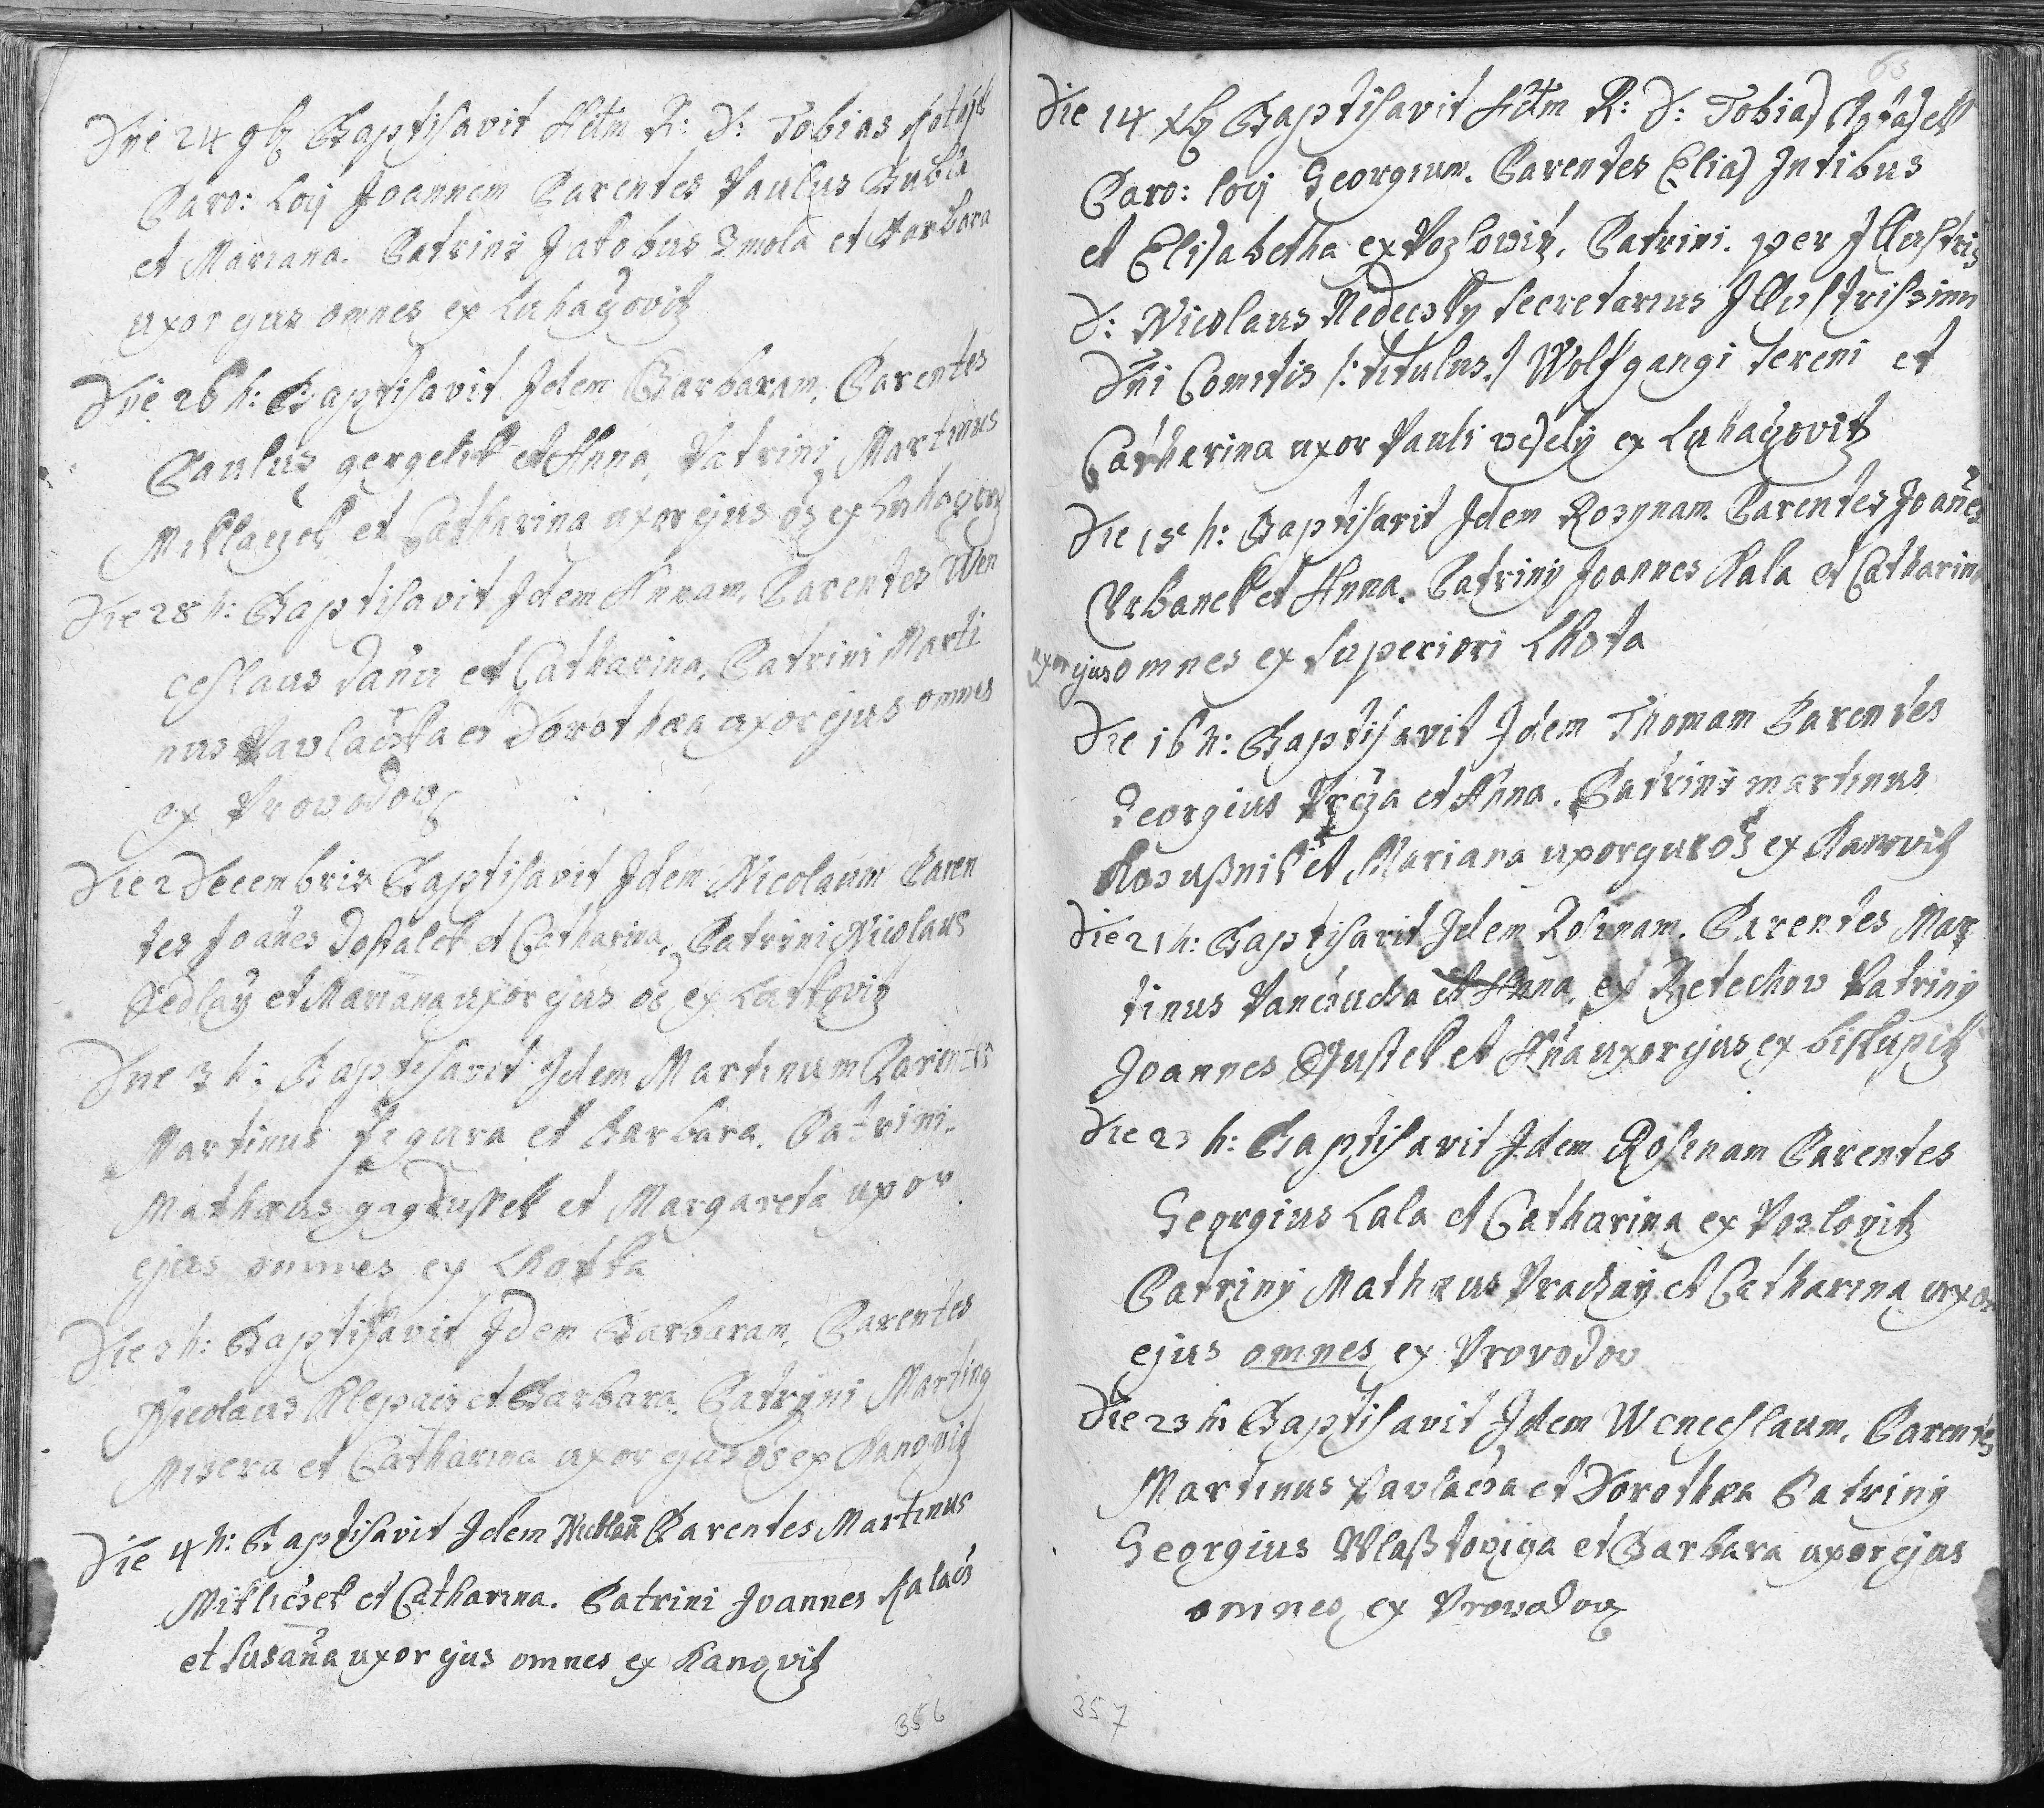 Die 24 9b Baptisavit Adm R: D: Tobias Kotasek
Paro: Locj Joannem Parentes Paulus Bubla
et Mariana. Patrini Jakobus Smola et Barbara
uxor ejus omnes ex Luhaczovitz
Die 26 h: Baptisavit Idem Barbaram, Parentes
Paulus gergelik et Anna, Patrini Martinus
Miklaczek et Catharina uxor ejus os ex Luhaczov
Die 28 h: Baptisavit Idem Annam. Parentes Wen
ceslaus et Catharina, Patrini Marti
nus Pavlaczka et Dorothea uxor ejus omnes
ex Provodov
Die 2 Decembris Baptisavit Idem Nicolaum Paren
tes Joañes Dostalek et Catharina, Patrini Nicolaus
Sedlay et Mariana uxor ejus os ex
Die 3 h: Baptisavit Idem Martinum Parentes
Martinus Figura et Barbara. Patrini.
Mathæus gagdussek et Margareta uxor
ejus omnes ex Lhotka
Die 3 h: Baptisavit Idem Barbaram, Parentes
Nicolaus Klepacz et Barbara. Patryni Martinus
Misera et Catharina uxor ejus os ex Kanovitz
Die 4 h: Baptisavit Idem Parentes Martinus
Mikliczek et Catharina. Patrini Joannes Kalacz
et Susaña uxor ejus omnes ex Kanovitz
356
63
Die 14 Xb Baptisavit Adm R: D: Tobias Kotasek
Paro: locj Georgium. Parentes Elias Intibus
et Elisabetha ex Pozlovitz. Patrini. per Illustris
D: Nicolaus Nedeczky Secretarius Illustrissimi
Dñi Comitis /: titulus :/ Wolfgangi Sereni et
Catharina uxor Pauli vesely ex Luhaczovitz
Die 15 h: Baptisavit Idem Rozynam. Parentes Joañes
Urbanek et Anna. Patrinj Joannes Kala et Catharina
uxor ejus omnes ex Superiori Lhota
Die 16 h: Baptisavit Idem Thomam Parentes
Georgius et Anna. Patrini martinus
Kozußnik et Mariana uxor ejus os ex Kanovitz
Die 21 h: Baptisavit Idem Rosinam. Parentes Mar
tinus Pancziucha et Anna, ex Rzetechov Patrinj
Joannes et Aña uxor ejus ex biskupitz
Die 23 h: Baptisavit Idem Rosinam Parentes
Georgius Lala et Catharina ex Pozlovitz
Patrinj Mathæus Prachay et Catharina uxor
ejus omnes ex Provodov
Die 23 h: Baptisavit Idem Wenceslaum. Parentes
Martinus Pavlacza et Dorothea Patrinj
Georgius Wlaßtoviga et Barbara uxor ejus
omnes ex Provodov
357